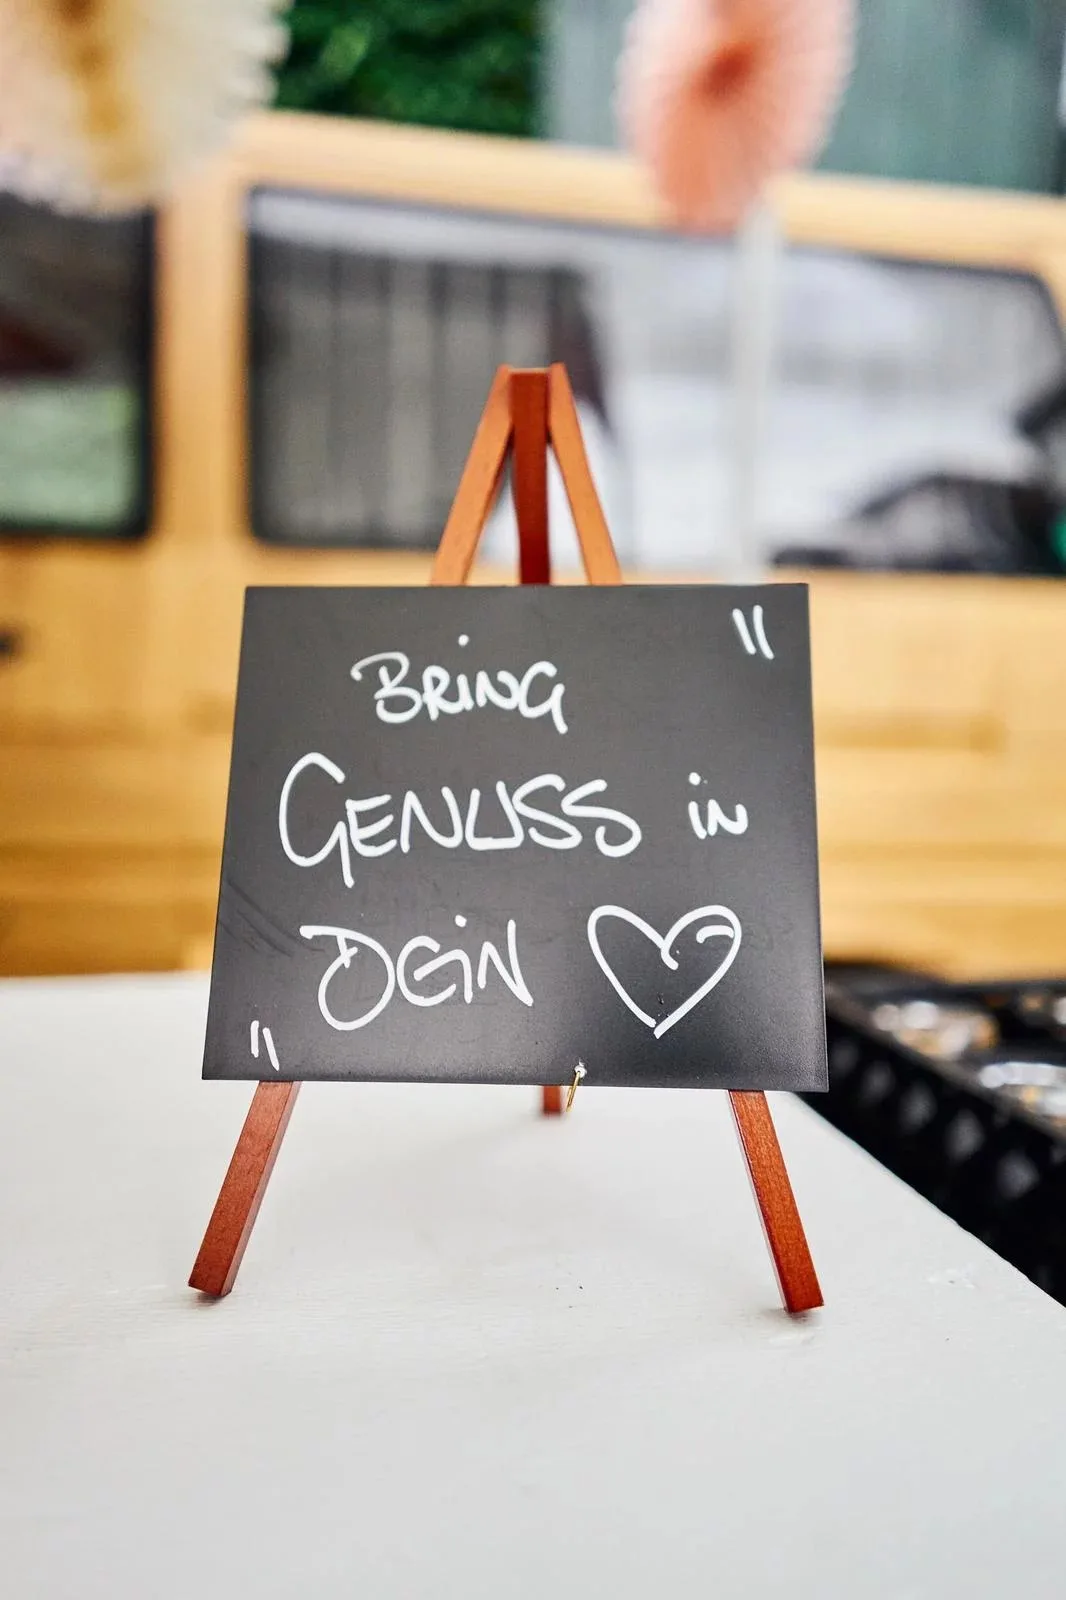 BRING "
GENUSS in
DEIN ♡
"